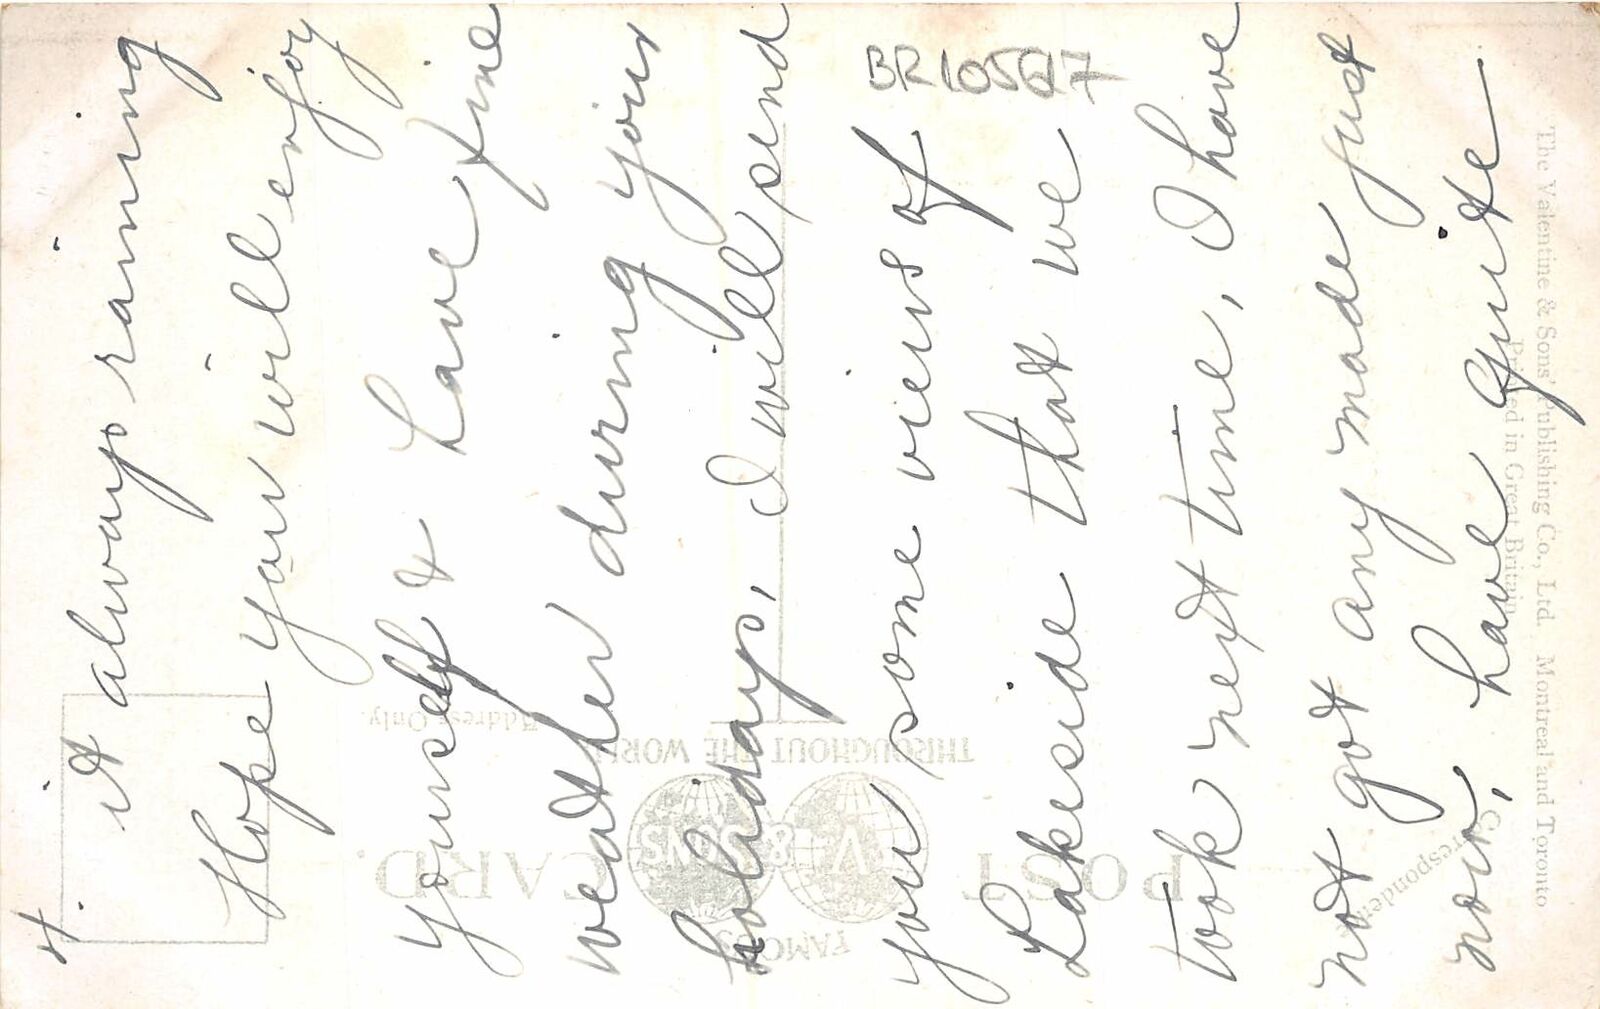 4.
it always raining
Hope you will enjoy
yourself & have fine
weather during your
holidays, I will send
you some views of
Lakeside that we
took next time, I have
not got any made just
now, have quite
BR10567
POST CARD.
FAMOUS
THROUGHOUT THE WORLD
V & SONS
Address Only.
Correspondence
The Valentine & Sons' Publishing Co., Ltd. Montreal and Toronto
Printed in Great Britain